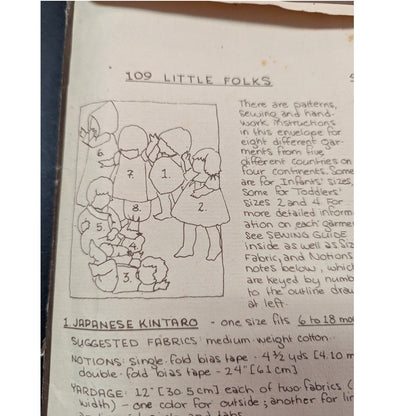 109 LITTLE FOLKS
There are patterns,
sewing and hand-
work instructions
in this envelope for
eight different gar-
ments from five
different countries on
four continents. Some
are for Infants' sizes,
some for Toddlers'
sizes 2 and 4. For
more detailed inform-
ation on each garme
see SEWING GUIDE
inside as well as Siz
Fabric, and Notions
notes below, which
are keyed by numb
to the outline draw
at left.
6.
7.
1.
2.
8.
5.
4.
3.
1. JAPANESE KINTARO - one size fits 6 to 18 mo
SUGGESTED FABRICS: medium weight cotton
NOTIONS: single-fold bias tape - 4½ yds [4.10 m
double-fold bias tape - 24" [61 cm]
YARDAGE: 12" [30.5 cm] each of two fabrics (
width) - one color for outside; another for lin